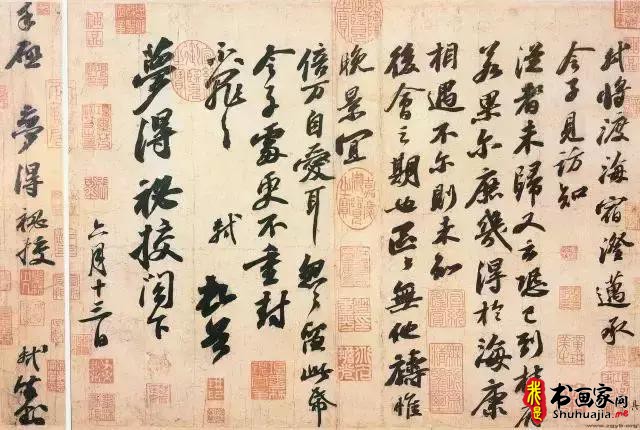 軾將渡海宿澄邁承
令子見訪知
從者未歸又云恐已到桂府
若果尔庶幾得於海康
相遇不尔則未知
後會之期也區〻無他禱惟
晚景宜
倍万自愛耳怱〻留此帋
令子處更不重封
不罪〻
軾頓首
夢得祕校閣下
六月十三日
手啟 夢得祕校
軾封
书画家网
Shuhuajia.net